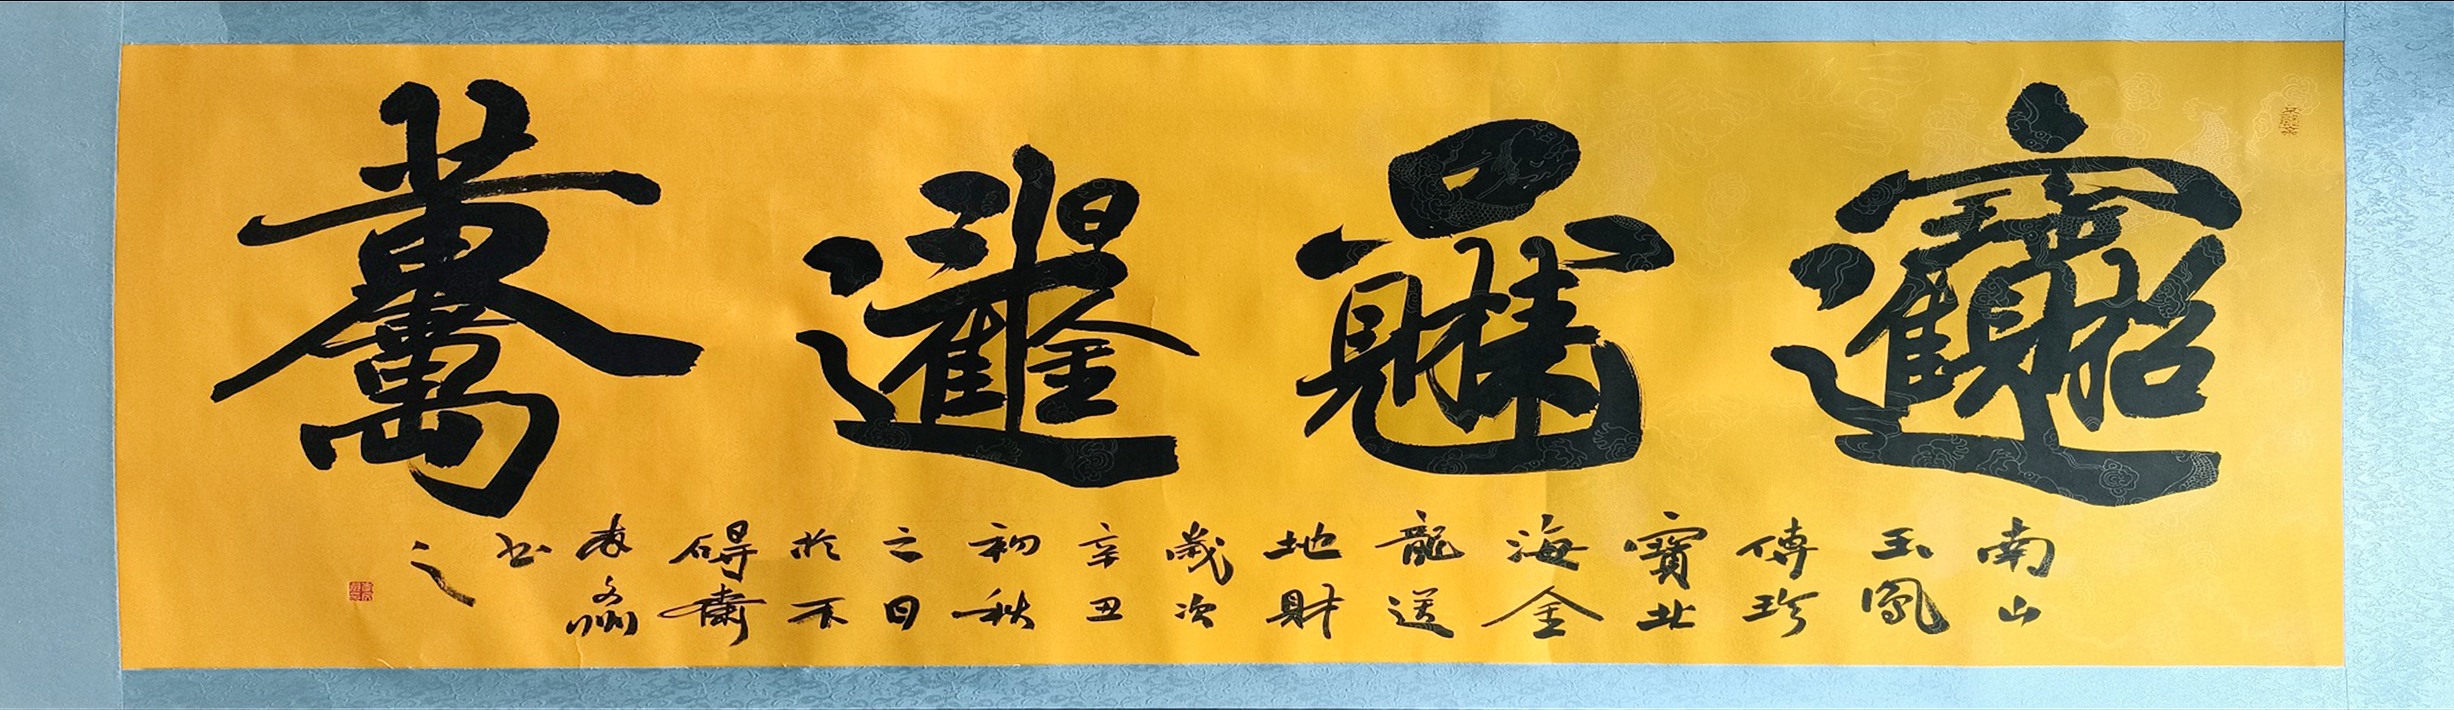 招財進寶
只見財來
日進斗金
黃金萬兩
南山
玉鳳
傳珍
寶北
海金
龍送
地財
歲次
辛丑
初秋
日
於不
碍齋
书
之